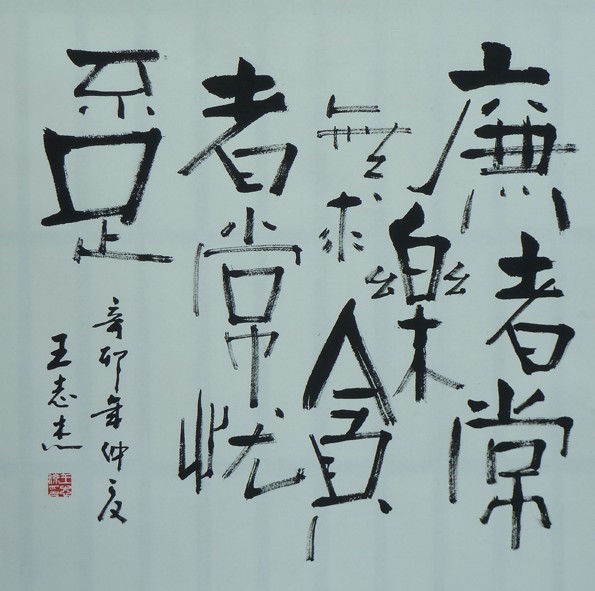 廉者常
樂
無求貪
者常忧
不足
辛卯年仲夏
王志杰